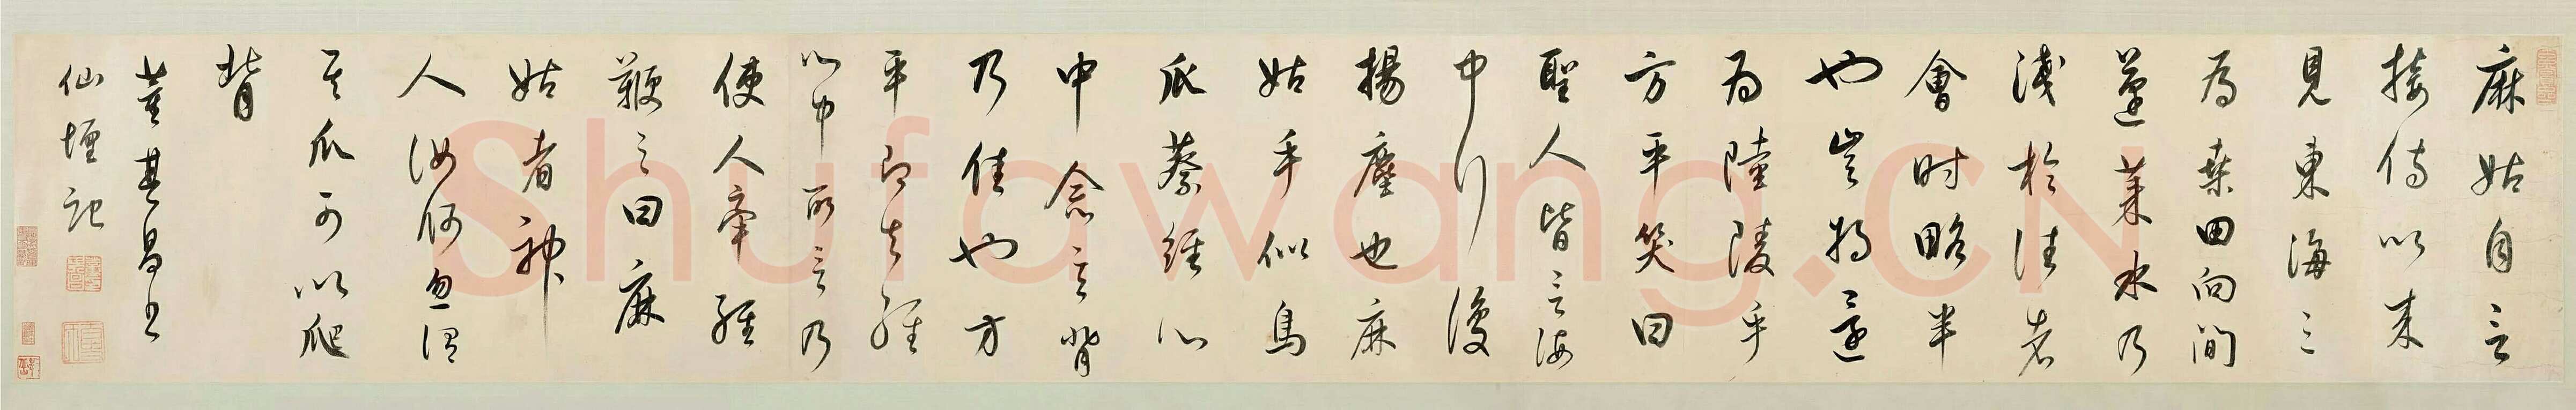 麻姑自言
接侍以来
見東海三
為桒田向間
蓬莱水乃
淺於往者
會时略半
也豈將還
为陸陵乎
方平笑曰
聖人皆言海
中行復
揚塵也麻
姑手似鳥
爪蔡經心
中念言背
乃佳也方
平即知經
心中所言乃
使人牽經
鞭之曰麻
姑者神
人汝何忽谓
其爪可以爬
背
董其昌书
仙壇記
Shufawang.CN